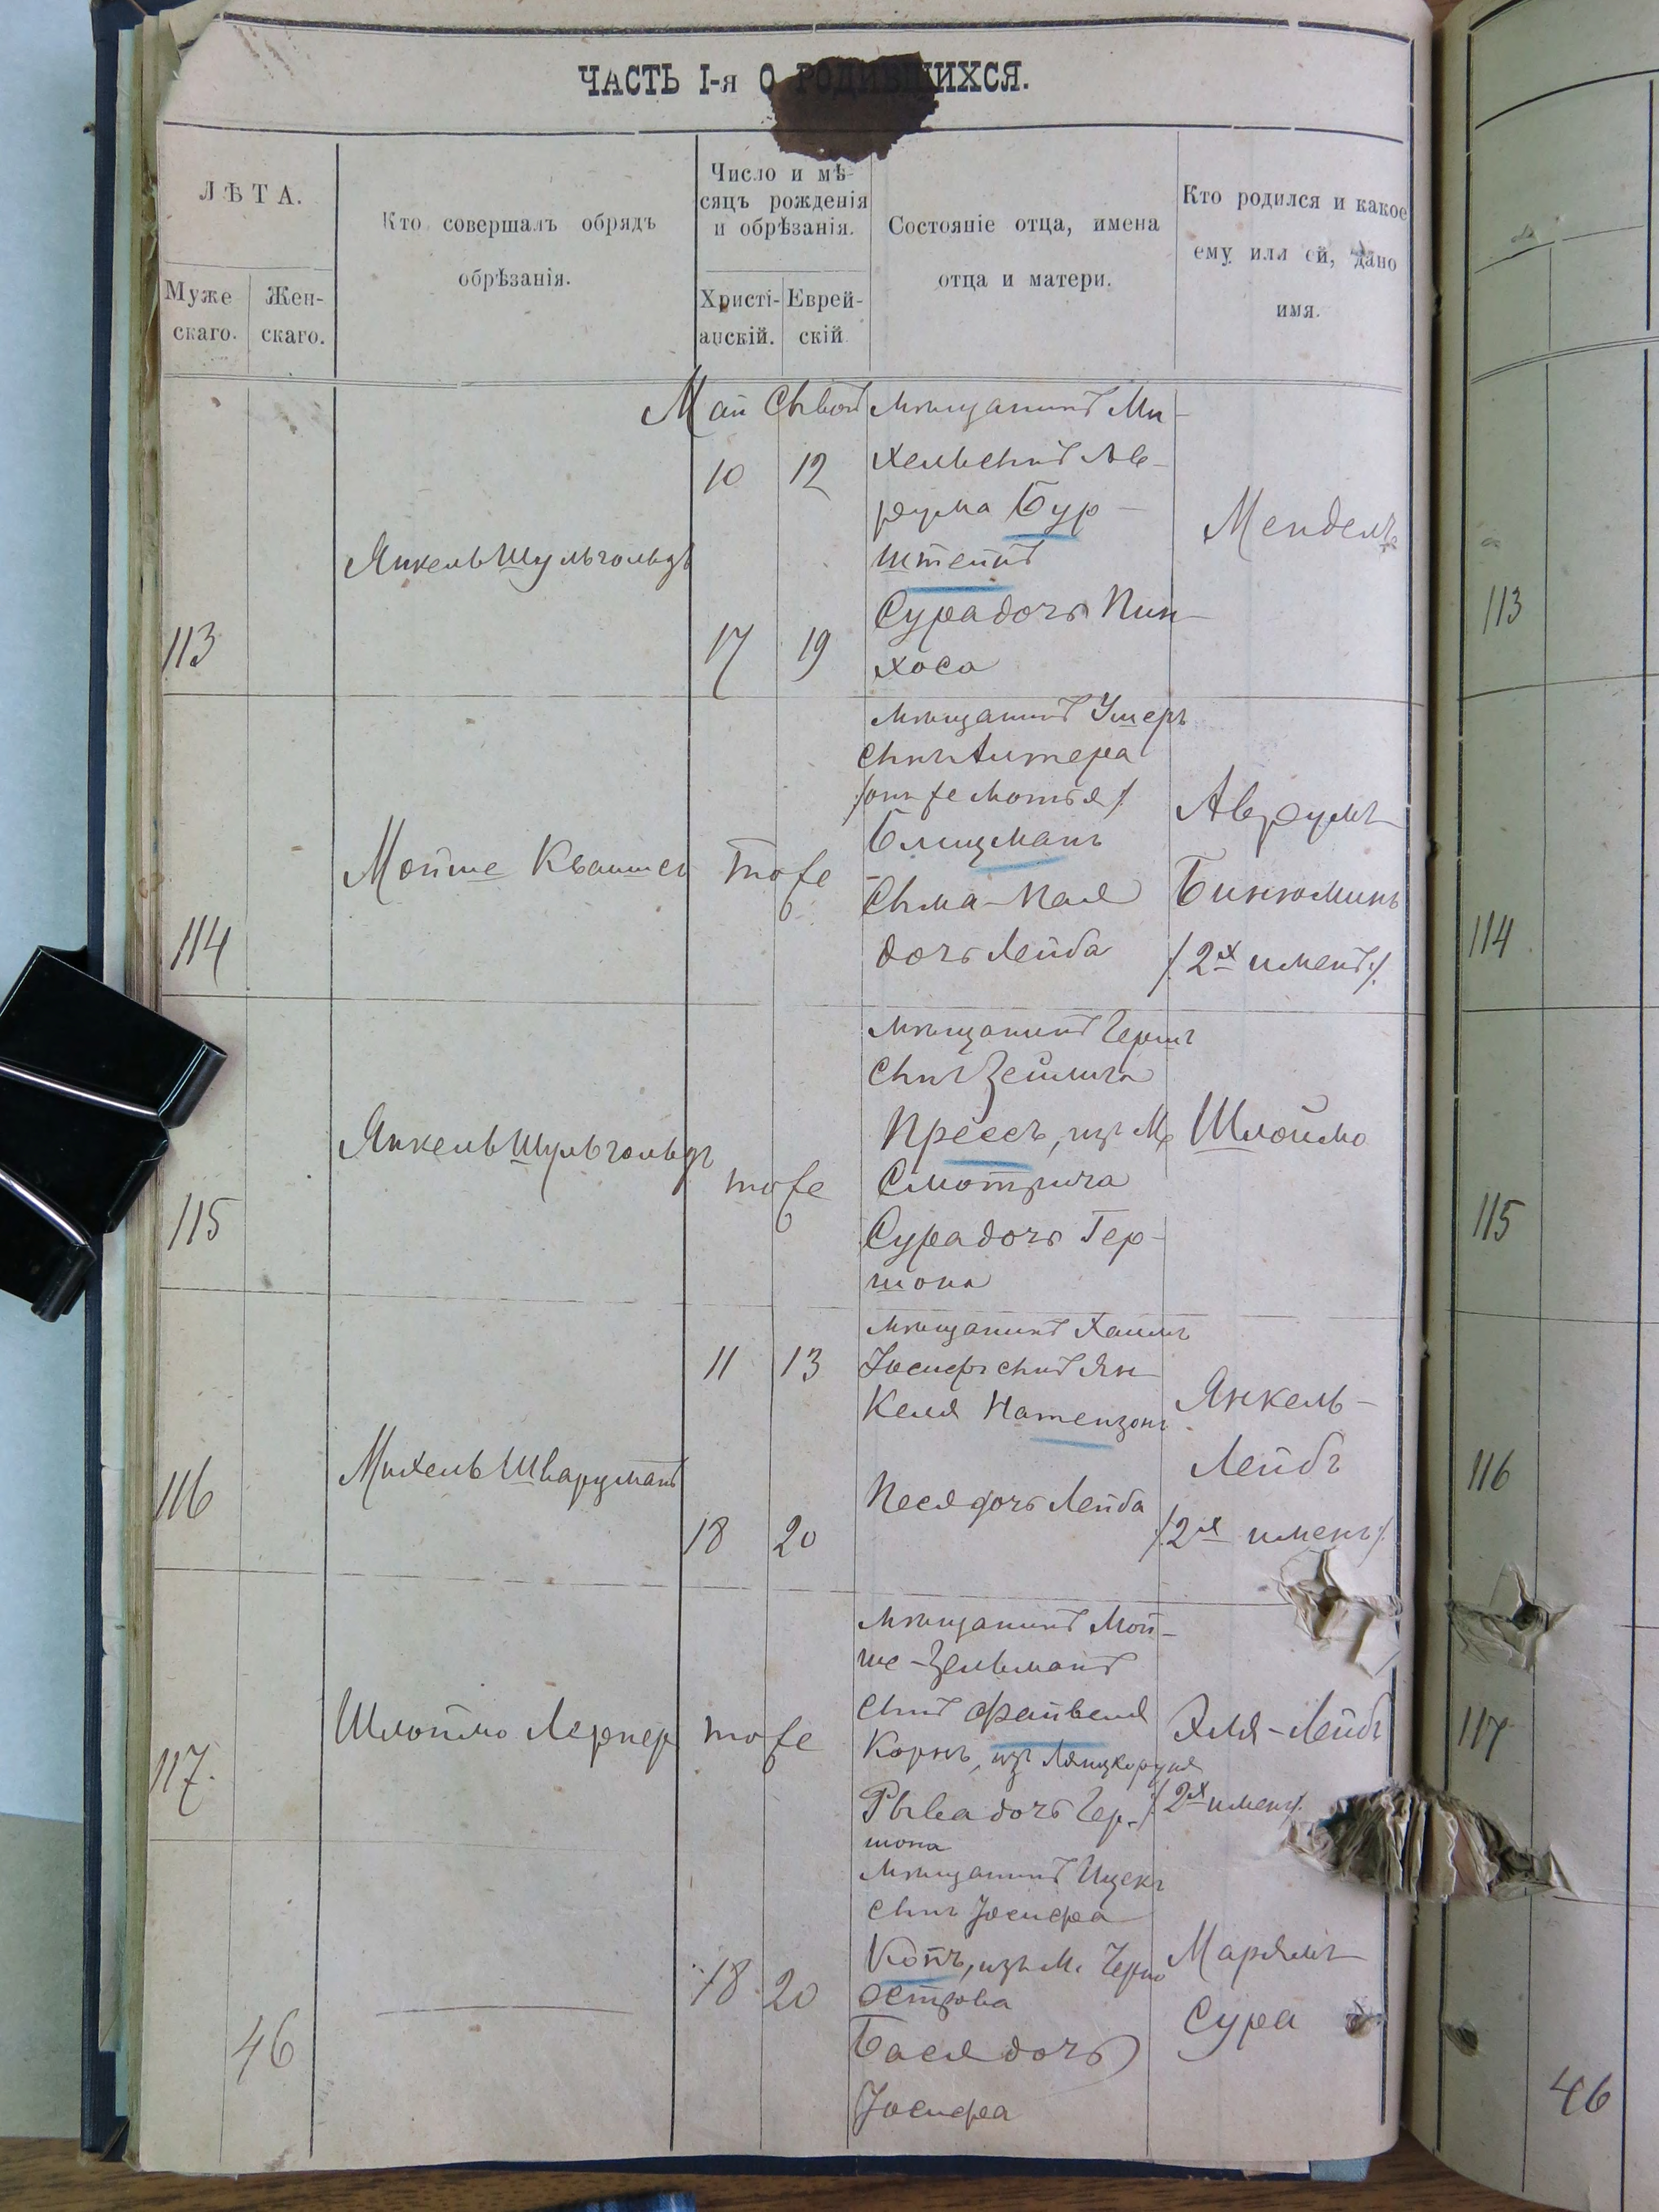 ЧАСТЬ I-я О РОДИВШИХСЯ.
ЛѢТА.
Муже
скаго.
Жен-
скаго.
Кто совершалъ обрядъ
обрѣзанія.
Число и мѣ-
сяцъ рожденія
и обрѣзанія.
Христі-
анскій.
Еврей-
скій.
Состояніе отца, имена
отца и матери.
Кто родился и какое
ему или ей, дано
имя.
113
Янкель Шульгольдъ
Май
10
17
Сывон
12
19
Мѣщанинъ Ми-
хель сынъ Ав-
рума Бур-
штейнъ
Сура дочь Пин-
хоса
Мендель
114
Мойше Квашег
тоже
Мѣщанинъ Ушеръ
сынъ Алтера
/онъ же Мотья/
Блицманъ
Сыма-Пая
дочь Лейба
Аврумъ
Бинюминъ
/2хъ именъ/
115
Янкель Шульгольдъ
тоже
Мѣщанинъ Гершъ
сынъ Зейлига
Прессъ, изъ М.
Смотрича
Сура дочь Гер-
шона
Шлойма
116
Михель Шварцманъ
11
18
13
20
Мѣщанинъ Хаимъ
Іосифъ сынъ Ян-
келя Натензонъ
Песя дочь Лейба
Янкель-
Лейбъ
/2хъ именъ/
117.
Шлойма Лернер
тоже
Мѣщанинъ Мой-
ше-Зельманъ
сынъ Файвеля
Корнъ, изъ Лянцкоруня
Рыва дочь Гер-
шона
Эля-Лейбъ
/2хъ именъ/
46
18
20
Мѣщанинъ Ицекъ
сынъ Іосифа
Копъ, изъ М. Черно
острова
Бася дочь
Іосифа
Марьямъ
Сура
113
114
115
116
117
46